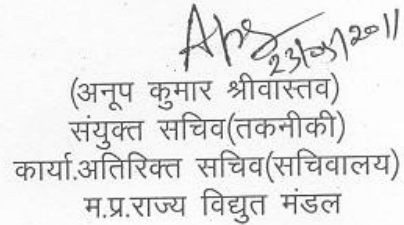 23/05/2011
(अनूप कुमार श्रीवास्तव)
संयुक्त सचिव(तकनीकी)
कार्या.अतिरिक्त सचिव(सचिवालय)
म.प्र.राज्य विद्युत मंडल